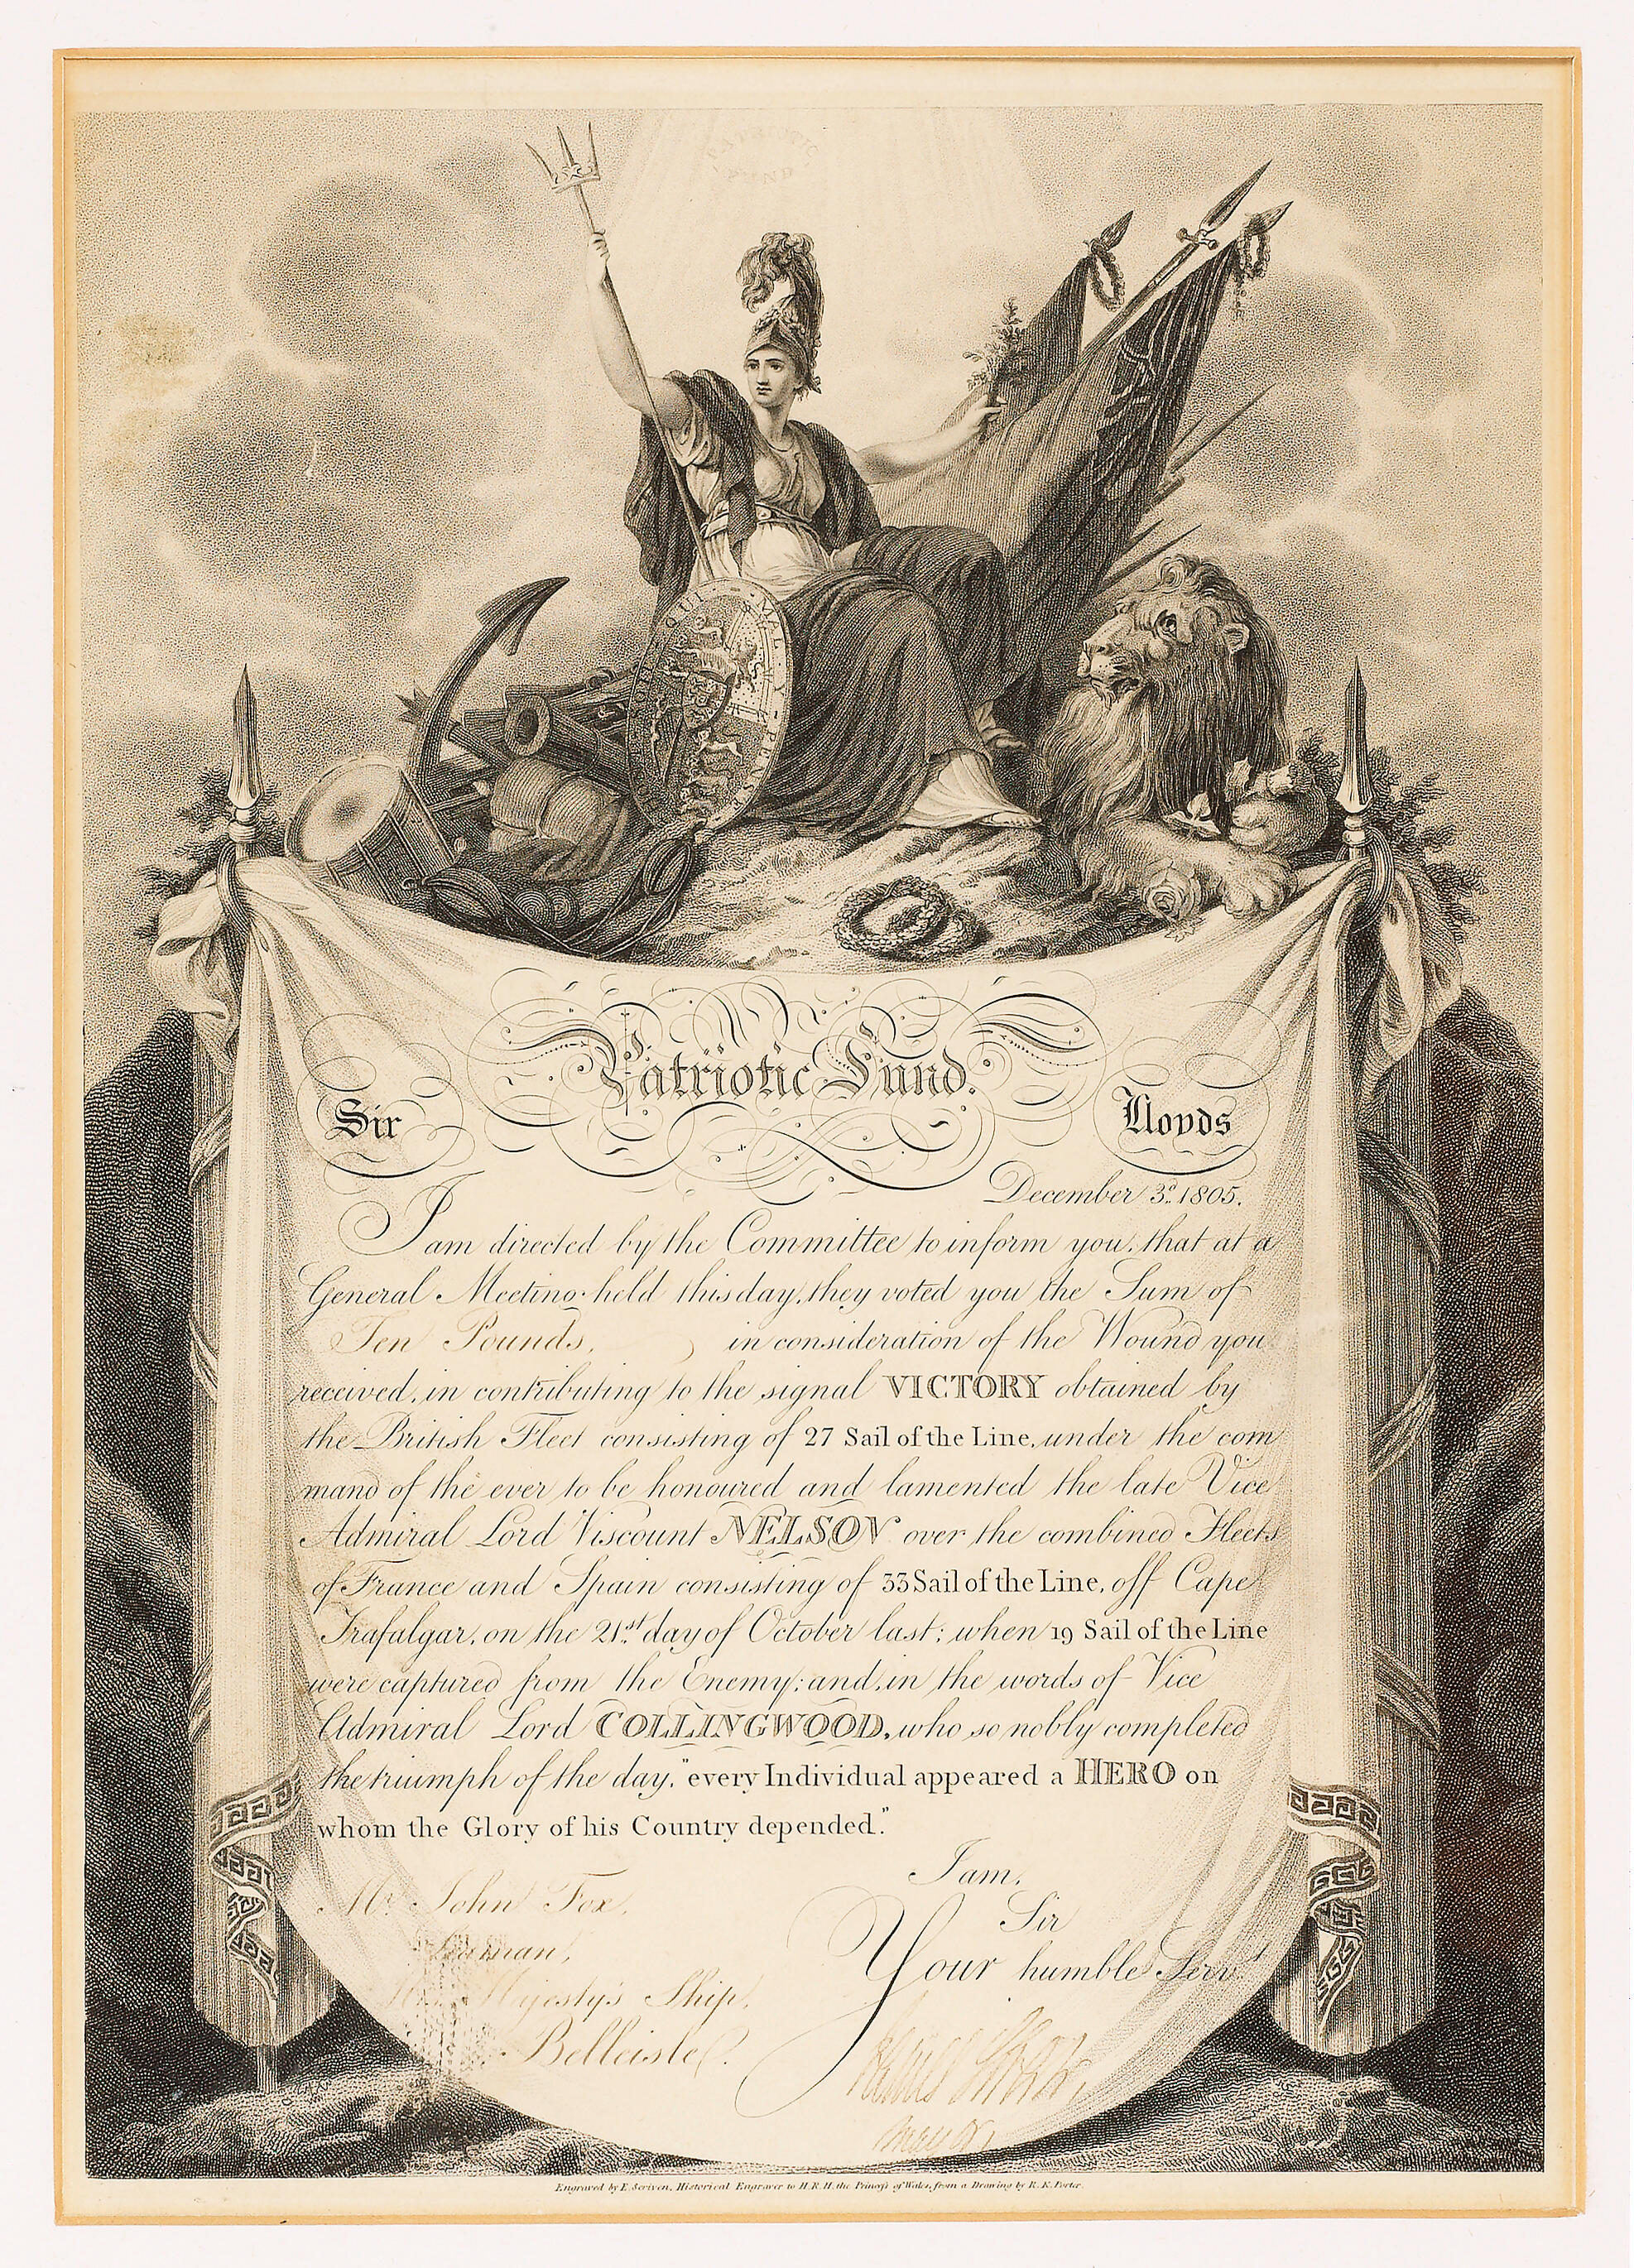 PATRIOTIC
FUND
HONI SOIT QUI MAL Y PENSE
Patriotic Fund.
Sir
Lloyds
December 3.d 1805.
I am directed by the Committee to inform you, that at a
General Meeting held this day, they voted you the Sum of
Ten Pounds, in consideration of the Wound you
received, in contributing to the signal VICTORY obtained by
the British Fleet consisting of 27 Sail of the Line, under the com
mand of the ever to be honoured and lamented the late Vice
Admiral Lord Viscount NELSON over the combined Fleets
of France and Spain consisting of 33 Sail of the Line, off Cape
Trafalgar, on the 21.st day of October last; when 19 Sail of the Line
were captured from the Enemy; and, in the words of Vice
Admiral Lord COLLINGWOOD, who so nobly completed
the triumph of the day, "every Individual appeared a HERO on
whom the Glory of his Country depended."
I am,
Sir
Your humble Serv.t
Mr. John Fox,
Seaman,
His Majesty's Ship,
Belleisle.
Mayor
Engraved by E. Scriven, Historical Engraver to H.R.H. the Princess of Wales, from a Drawing by R. K. Porter.